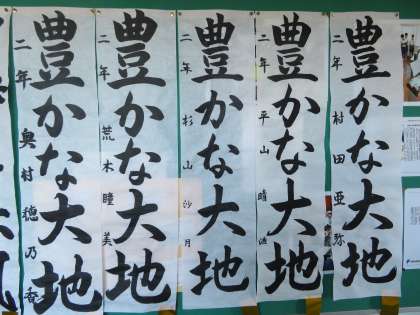 豊かな大地
二年 村田亜弥
豊かな大地
二年 平山晴
豊かな大地
二年 杉山沙月
豊かな大地
二年 荒木瞳美
豊かな大地
二年 奥村穂乃香